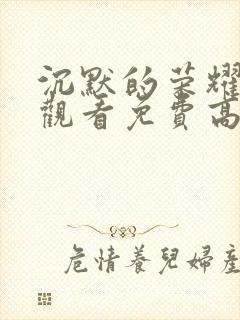 沉默的榮耀
觀看免費高
危情養兒婦產